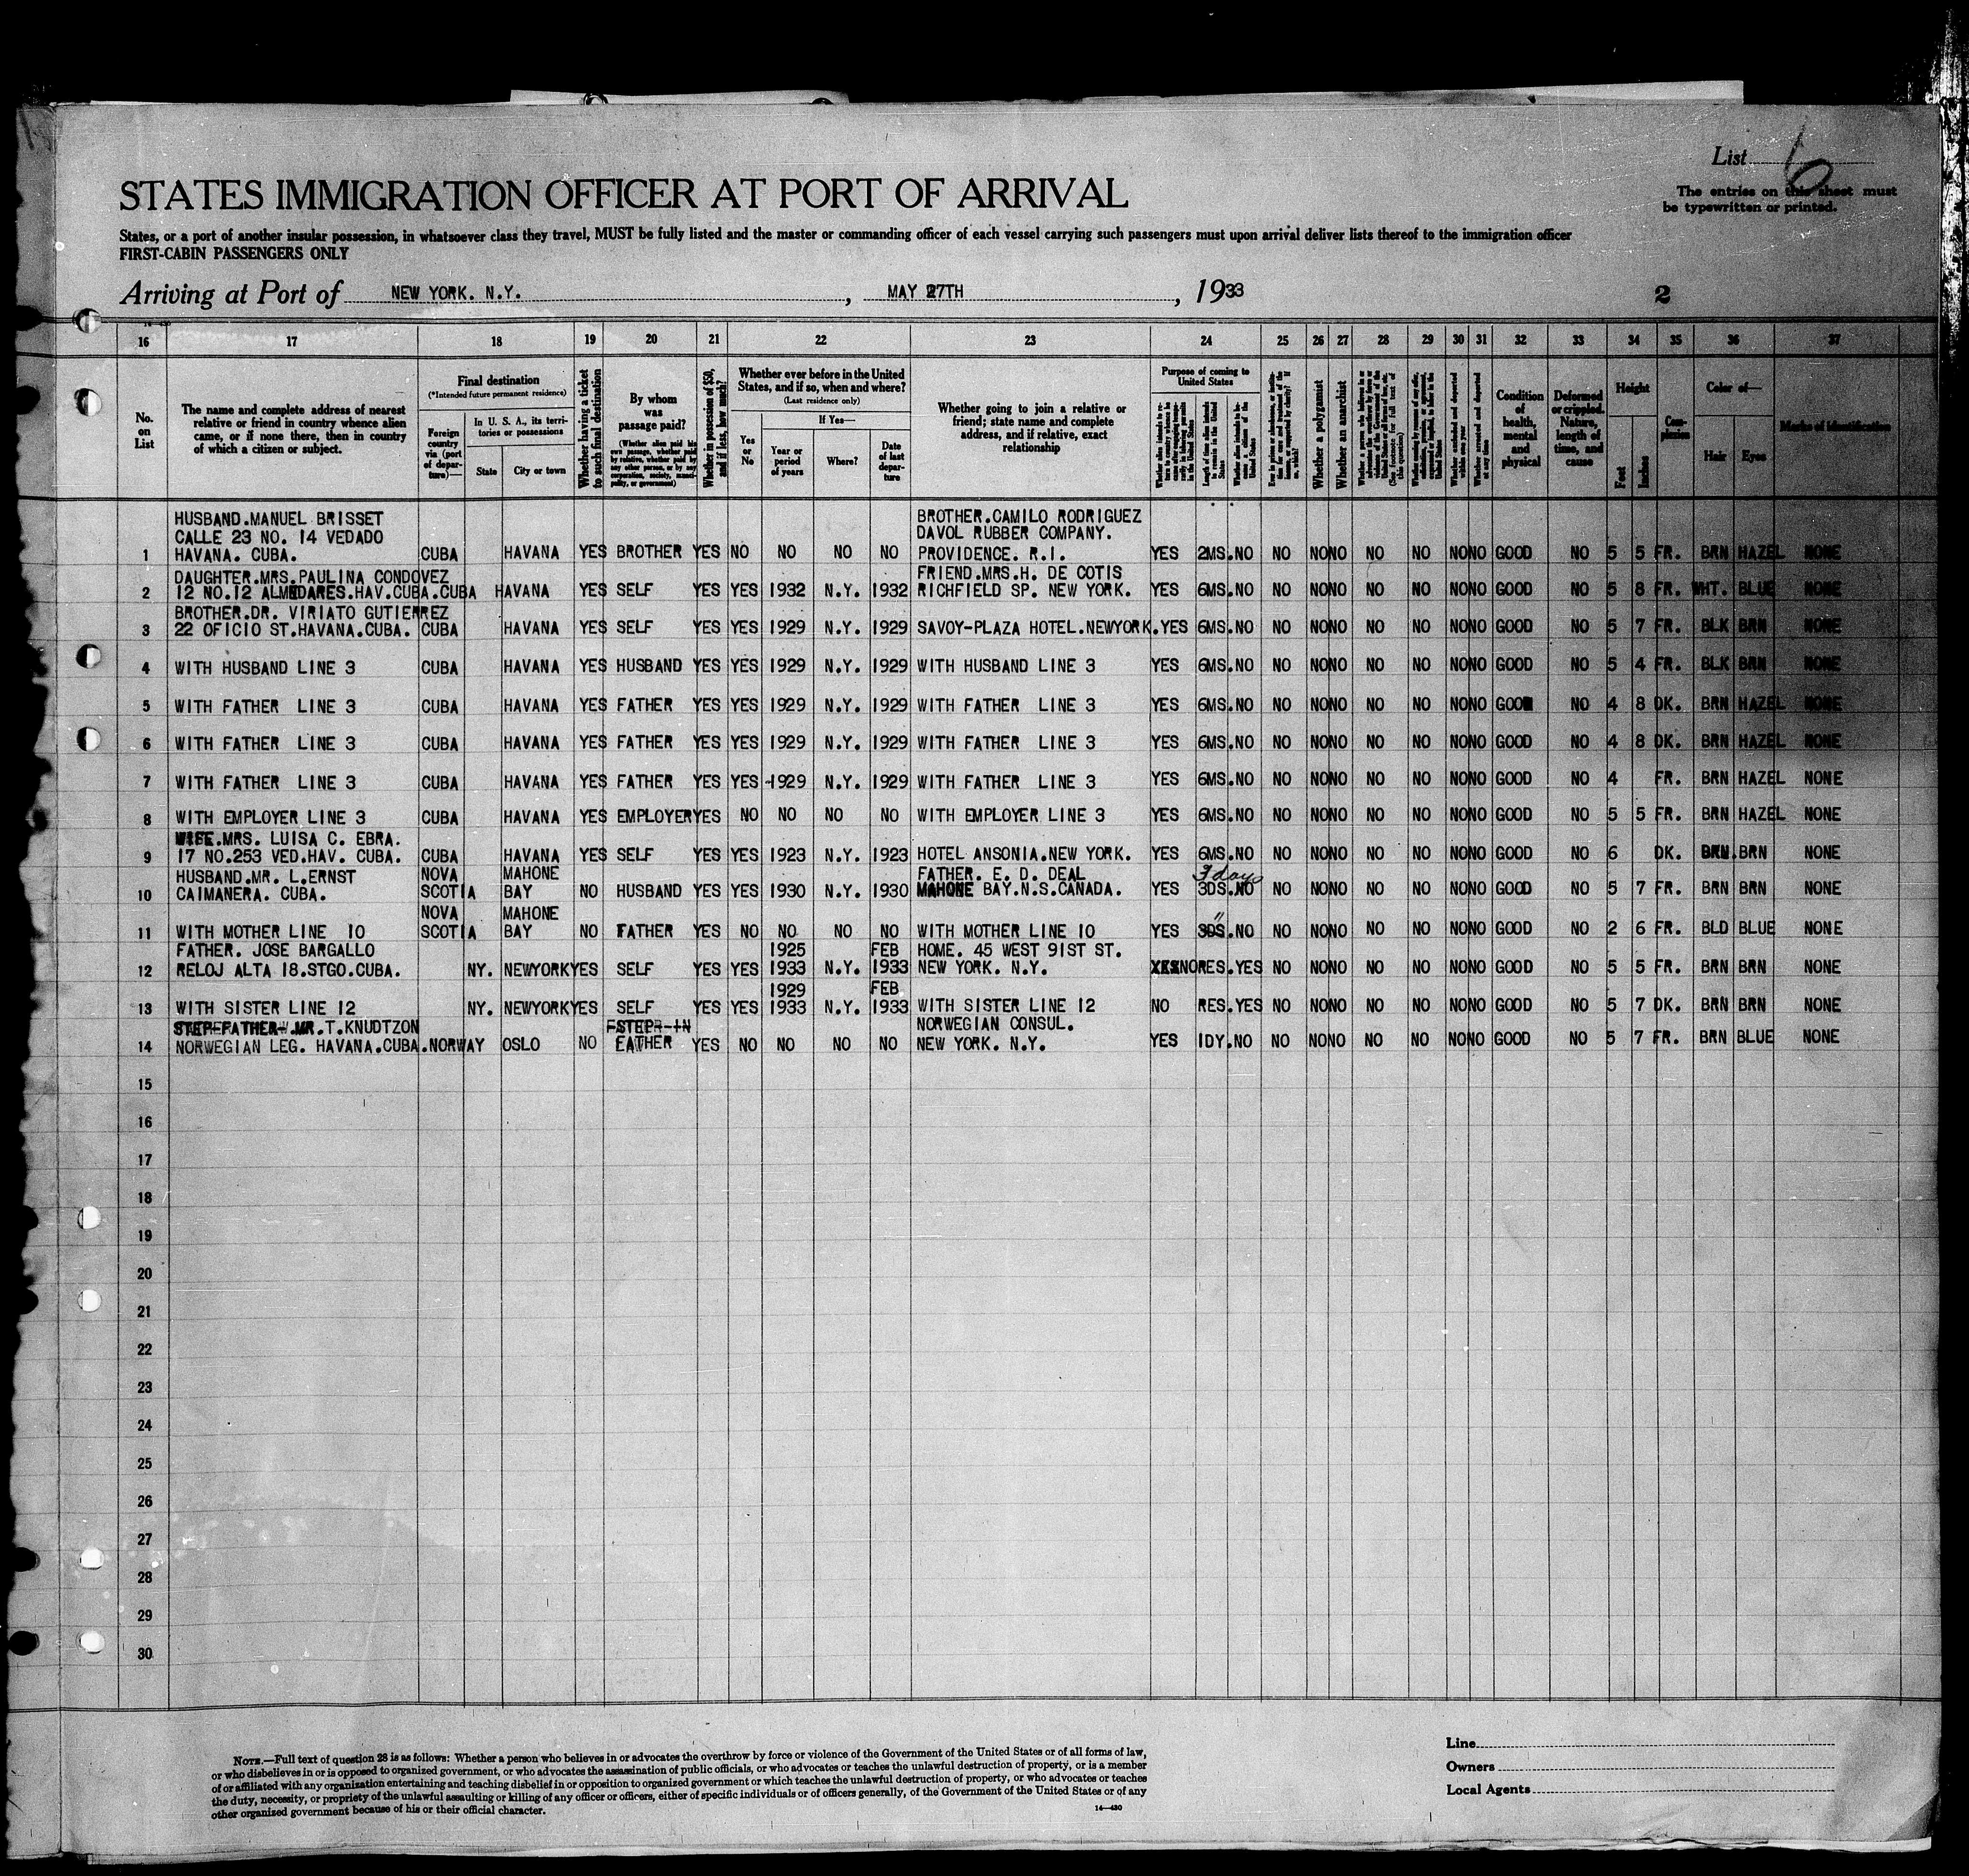 List 6
STATES IMMIGRATION OFFICER AT PORT OF ARRIVAL
The entries on this sheet must
be typewritten or printed.
States, or a port of another insular possession, in whatsoever class they travel, MUST be fully listed and the master or commanding officer of each vessel carrying such passengers must upon arrival deliver lists thereof to the immigration officer
FIRST-CABIN PASSENGERS ONLY
Arriving at Port of NEW YORK. N.Y. , MAY 27TH , 1933
2
16 17 18 19 20 21 22 23 24 25 26 27 28 29 30 31 32 33 34 35 36 37
No. on List
The name and complete address of nearest relative or friend in country whence alien came, or if none there, then in country of which a citizen or subject.
Final destination
(*Intended future permanent residence)
Foreign country via (port of departure)—
In U. S. A., its territories or possessions
State
City or town
Whether having a ticket to such final destination
By whom was passage paid?
(Whether alien paid his own passage, whether paid by relative, whether paid by any other person, or by any corporation, society, municipality, or government)
Whether in possession of $50, and if less, how much?
Whether ever before in the United States, and if so, when and where?
(Last residence only)
Yes or No
If Yes—
Year or period of years
Where?
Date of last departure
Whether going to join a relative or friend; state name and complete address, and if relative, exact relationship
Purpose of coming to United States
Length of time alien intends to remain in the United States
Whether a polygamist
Whether an anarchist
(See footnote for full text of this question)
Condition of health, mental and physical
Deformed or crippled. Nature, length of time, and cause
Height
Feet
Inches
Complexion
Color of—
Hair
Eyes
Marks of identification
HUSBAND.MANUEL BRISSET BROTHER.CAMILO RODRIGUEZ
CALLE 23 NO. 14 VEDADO DAVOL RUBBER COMPANY.
1 HAVANA. CUBA. CUBA HAVANA YES BROTHER YES NO NO NO NO PROVIDENCE. R.I. YES 2MS. NO NO NO NO NO NO NO NO GOOD NO 5 5 FR. BRN HAZEL NONE
DAUGHTER.MRS.PAULINA CONDOVEZ FRIEND.MRS.H. DE COTIS
2 12 NO.12 ALMEDARES.HAV.CUBA.CUBA HAVANA YES SELF YES YES 1932 N.Y. 1932 RICHFIELD SP. NEW YORK. YES 6MS. NO NO NO NO NO NO NO NO GOOD NO 5 8 FR. WHT. BLUE NONE
BROTHER.DR. VIRIATO GUTIERREZ
3 22 OFICIO ST.HAVANA.CUBA. CUBA HAVANA YES SELF YES YES 1929 N.Y. 1929 SAVOY-PLAZA HOTEL.NEWYORK. YES 6MS. NO NO NO NO NO NO NO NO GOOD NO 5 7 FR. BLK BRN NONE
4 WITH HUSBAND LINE 3 CUBA HAVANA YES HUSBAND YES YES 1929 N.Y. 1929 WITH HUSBAND LINE 3 YES 6MS. NO NO NO NO NO NO NO NO GOOD NO 5 4 FR. BLK BRN NONE
5 WITH FATHER LINE 3 CUBA HAVANA YES FATHER YES YES 1929 N.Y. 1929 WITH FATHER LINE 3 YES 6MS. NO NO NO NO NO NO NO NO GOOD NO 4 8 DK. BRN HAZEL NONE
6 WITH FATHER LINE 3 CUBA HAVANA YES FATHER YES YES 1929 N.Y. 1929 WITH FATHER LINE 3 YES 6MS. NO NO NO NO NO NO NO NO GOOD NO 4 8 DK. BRN HAZEL NONE
7 WITH FATHER LINE 3 CUBA HAVANA YES FATHER YES YES 1929 N.Y. 1929 WITH FATHER LINE 3 YES 6MS. NO NO NO NO NO NO NO NO GOOD NO 4 FR. BRN HAZEL NONE
8 WITH EMPLOYER LINE 3 CUBA HAVANA YES EMPLOYER YES NO NO NO NO WITH EMPLOYER LINE 3 YES 6MS. NO NO NO NO NO NO NO NO GOOD NO 5 5 FR. BRN HAZEL NONE
WIFE.MRS. LUISA C. EBRA.
9 17 NO.253 VED.HAV. CUBA. CUBA HAVANA YES SELF YES YES 1923 N.Y. 1923 HOTEL ANSONIA.NEW YORK. YES 6MS. NO NO NO NO NO NO NO NO GOOD NO 6 DK. BRN. BRN NONE
HUSBAND.MR. L.ERNST NOVA MAHONE FATHER. E. D. DEAL 3 days
10 CAIMANERA. CUBA. SCOTIA BAY NO HUSBAND YES YES 1930 N.Y. 1930 MAHONE BAY.N.S.CANADA. YES 3DS. NO NO NO NO NO NO NO NO GOOD NO 5 7 FR. BRN BRN NONE
NOVA MAHONE "
11 WITH MOTHER LINE 10 SCOTIA BAY NO FATHER YES NO NO NO NO WITH MOTHER LINE 10 YES 3DS. NO NO NO NO NO NO NO NO GOOD NO 2 6 FR. BLD BLUE NONE
FATHER. JOSE BARGALLO 1925 FEB HOME. 45 WEST 91ST ST.
12 RELOJ ALTA 18.STGO.CUBA. NY. NEWYORK YES SELF YES YES 1933 N.Y. 1933 NEW YORK. N.Y. NO RES. YES NO NO NO NO NO NO NO GOOD NO 5 5 FR. BRN BRN NONE
1929 FEB
13 WITH SISTER LINE 12 NY. NEWYORK YES SELF YES YES 1933 N.Y. 1933 WITH SISTER LINE 12 NO RES. YES NO NO NO NO NO NO NO GOOD NO 5 7 DK. BRN BRN NONE
STEP-FATHER.MR.T.KNUDTZON STEP-IN NORWEGIAN CONSUL.
14 NORWEGIAN LEG. HAVANA.CUBA. NORWAY OSLO NO FATHER YES NO NO NO NO NEW YORK. N.Y. YES 1DY. NO NO NO NO NO NO NO NO GOOD NO 5 7 FR. BRN BLUE NONE
15
16
17
18
19
20
21
22
23
24
25
26
27
28
29
30
NOTE.—Full text of question 28 is as follows: Whether a person who believes in or advocates the overthrow by force or violence of the Government of the United States or of all forms of law,
or who disbelieves in or is opposed to organized government, or who advocates the assassination of public officials, or who advocates or teaches the unlawful destruction of property, or is a member
of or affiliated with any organization entertaining and teaching disbelief in or opposition to organized government or which teaches the unlawful destruction of property, or who advocates or teaches
the duty, necessity, or propriety of the unlawful assaulting or killing of any officer or officers, either of specific individuals or of officers generally, of the Government of the United States or of any
other organized government because of his or their official character.
14—430
Line
Owners
Local Agents